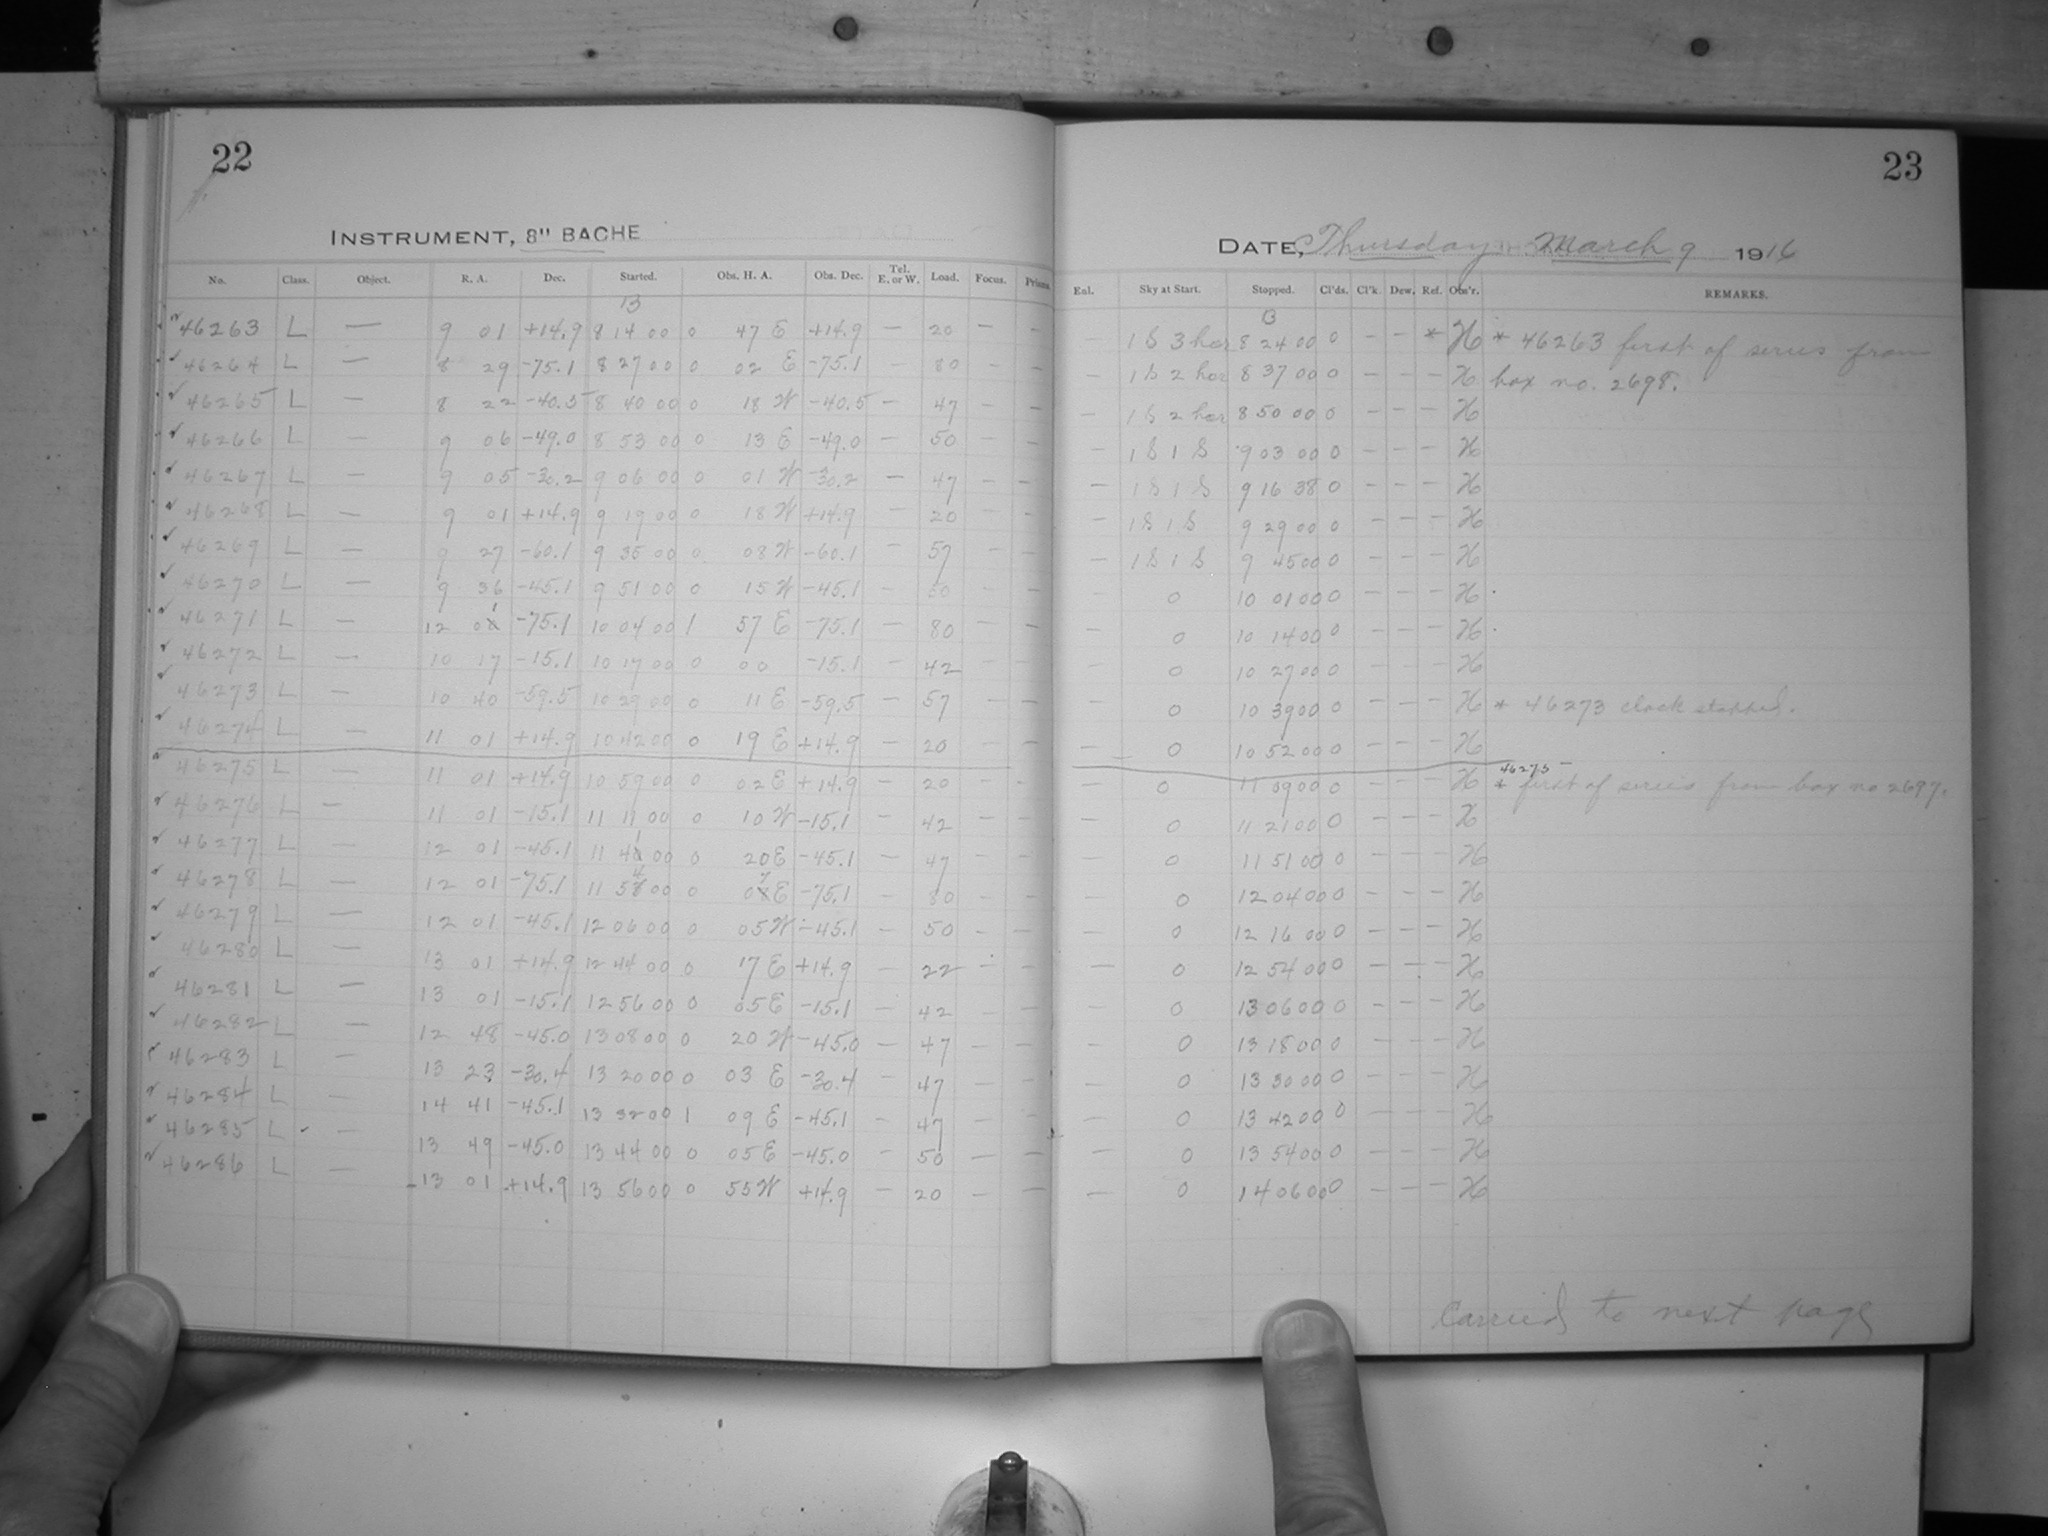 22
INSTRUMENT, 8" BACHE
No. Class. Object. R. A. Dec. Started. Obs. H. A. Obs. Dec. Tel. E. or W. Load. Focus. Prisms.
13
46263 L — 9 01 +14.9 8 14 00 0 47 E +14.9 — 20 — —
46264 L — 8 29 -75.1 8 27 00 0 02 E -75.1 — 80 — —
46265 L — 8 22 -40.5 8 40 00 0 18 W -40.5 — 47 — —
46266 L — 9 06 -49.0 8 53 00 0 13 E -49.0 — 50 — —
46267 L — 9 05 -30.2 9 06 00 0 01 W -30.2 — 47 — —
46268 L — 9 01 +14.9 9 19 00 0 18 W +14.9 — 20 — —
46269 L — 9 27 -60.1 9 35 00 0 08 W -60.1 — 57 — —
46270 L — 9 36 -45.1 9 51 00 0 15 W -45.1 — 50 — —
46271 L — 12 01 -75.1 10 04 00 1 57 E -75.1 — 80 — —
46272 L — 10 17 -15.1 10 17 00 0 00 -15.1 — 42 — —
46273 L — 10 40 -59.5 10 29 00 0 11 E -59.5 — 57 — —
46274 L — 11 01 +14.9 10 42 00 0 19 E +14.9 — 20 — —
46275 L — 11 01 +14.9 10 59 00 0 02 E +14.9 — 20 — —
46276 L — 11 01 -15.1 11 11 00 0 10 W -15.1 — 42 — —
46277 L — 12 01 -45.1 11 41 00 0 20 E -45.1 — 47 — —
46278 L — 12 01 -75.1 11 54 00 0 07 E -75.1 — 80 — —
46279 L — 12 01 -45.1 12 06 00 0 05 W -45.1 — 50 — —
46280 L — 13 01 +14.9 12 44 00 0 17 E +14.9 — 22 — —
46281 L — 13 01 -15.1 12 56 00 0 05 E -15.1 — 42 — —
46282 L — 12 48 -45.0 13 08 00 0 20 W -45.0 — 47 — —
46283 L — 13 23 -30.4 13 20 00 0 03 E -30.4 — 47 — —
46284 L — 14 41 -45.1 13 32 00 1 09 E -45.1 — 47 — —
46285 L — 13 49 -45.0 13 44 00 0 05 E -45.0 — 50 — —
46286 L — 13 01 +14.9 13 56 00 0 55 W +14.9 — 20 — —
23
DATE, Thursday March 9 1916
Enl. Sky at Start. Stopped. Cl'ds. Cl'k. Dew. Ref. Obs'r. REMARKS.
13
— 1 S 3 hor 8 24 00 0 — — * H * 46263 first of series from
— 1 S 2 hor 8 37 00 0 — — — H box no. 2698.
— 1 S 2 hor 8 50 00 0 — — — H
— 1 S 1 S 9 03 00 0 — — — H
— 1 S 1 S 9 16 38 0 — — — H
— 1 S 1 S 9 29 00 0 — — — H
— 1 S 1 S 9 45 00 0 — — — H
— 0 10 01 00 0 — — — H
— 0 10 14 00 0 — — — H
— 0 10 27 00 0 — — — H
— 0 10 39 00 0 — — — H * 46273 clock stopped.
— 0 10 52 00 0 — — — H
— 0 11 09 00 0 — — — H * 46275 first of series from box no 2697.
— 0 11 21 00 0 — — — H
— 0 11 51 00 0 — — — H
— 0 12 04 00 0 — — — H
— 0 12 16 00 0 — — — H
— 0 12 54 00 0 — — — H
— 0 13 06 00 0 — — — H
— 0 13 18 00 0 — — — H
— 0 13 30 00 0 — — — H
— 0 13 42 00 0 — — — H
— 0 13 54 00 0 — — — H
— 0 14 06 00 0 — — — H
Carried to next page